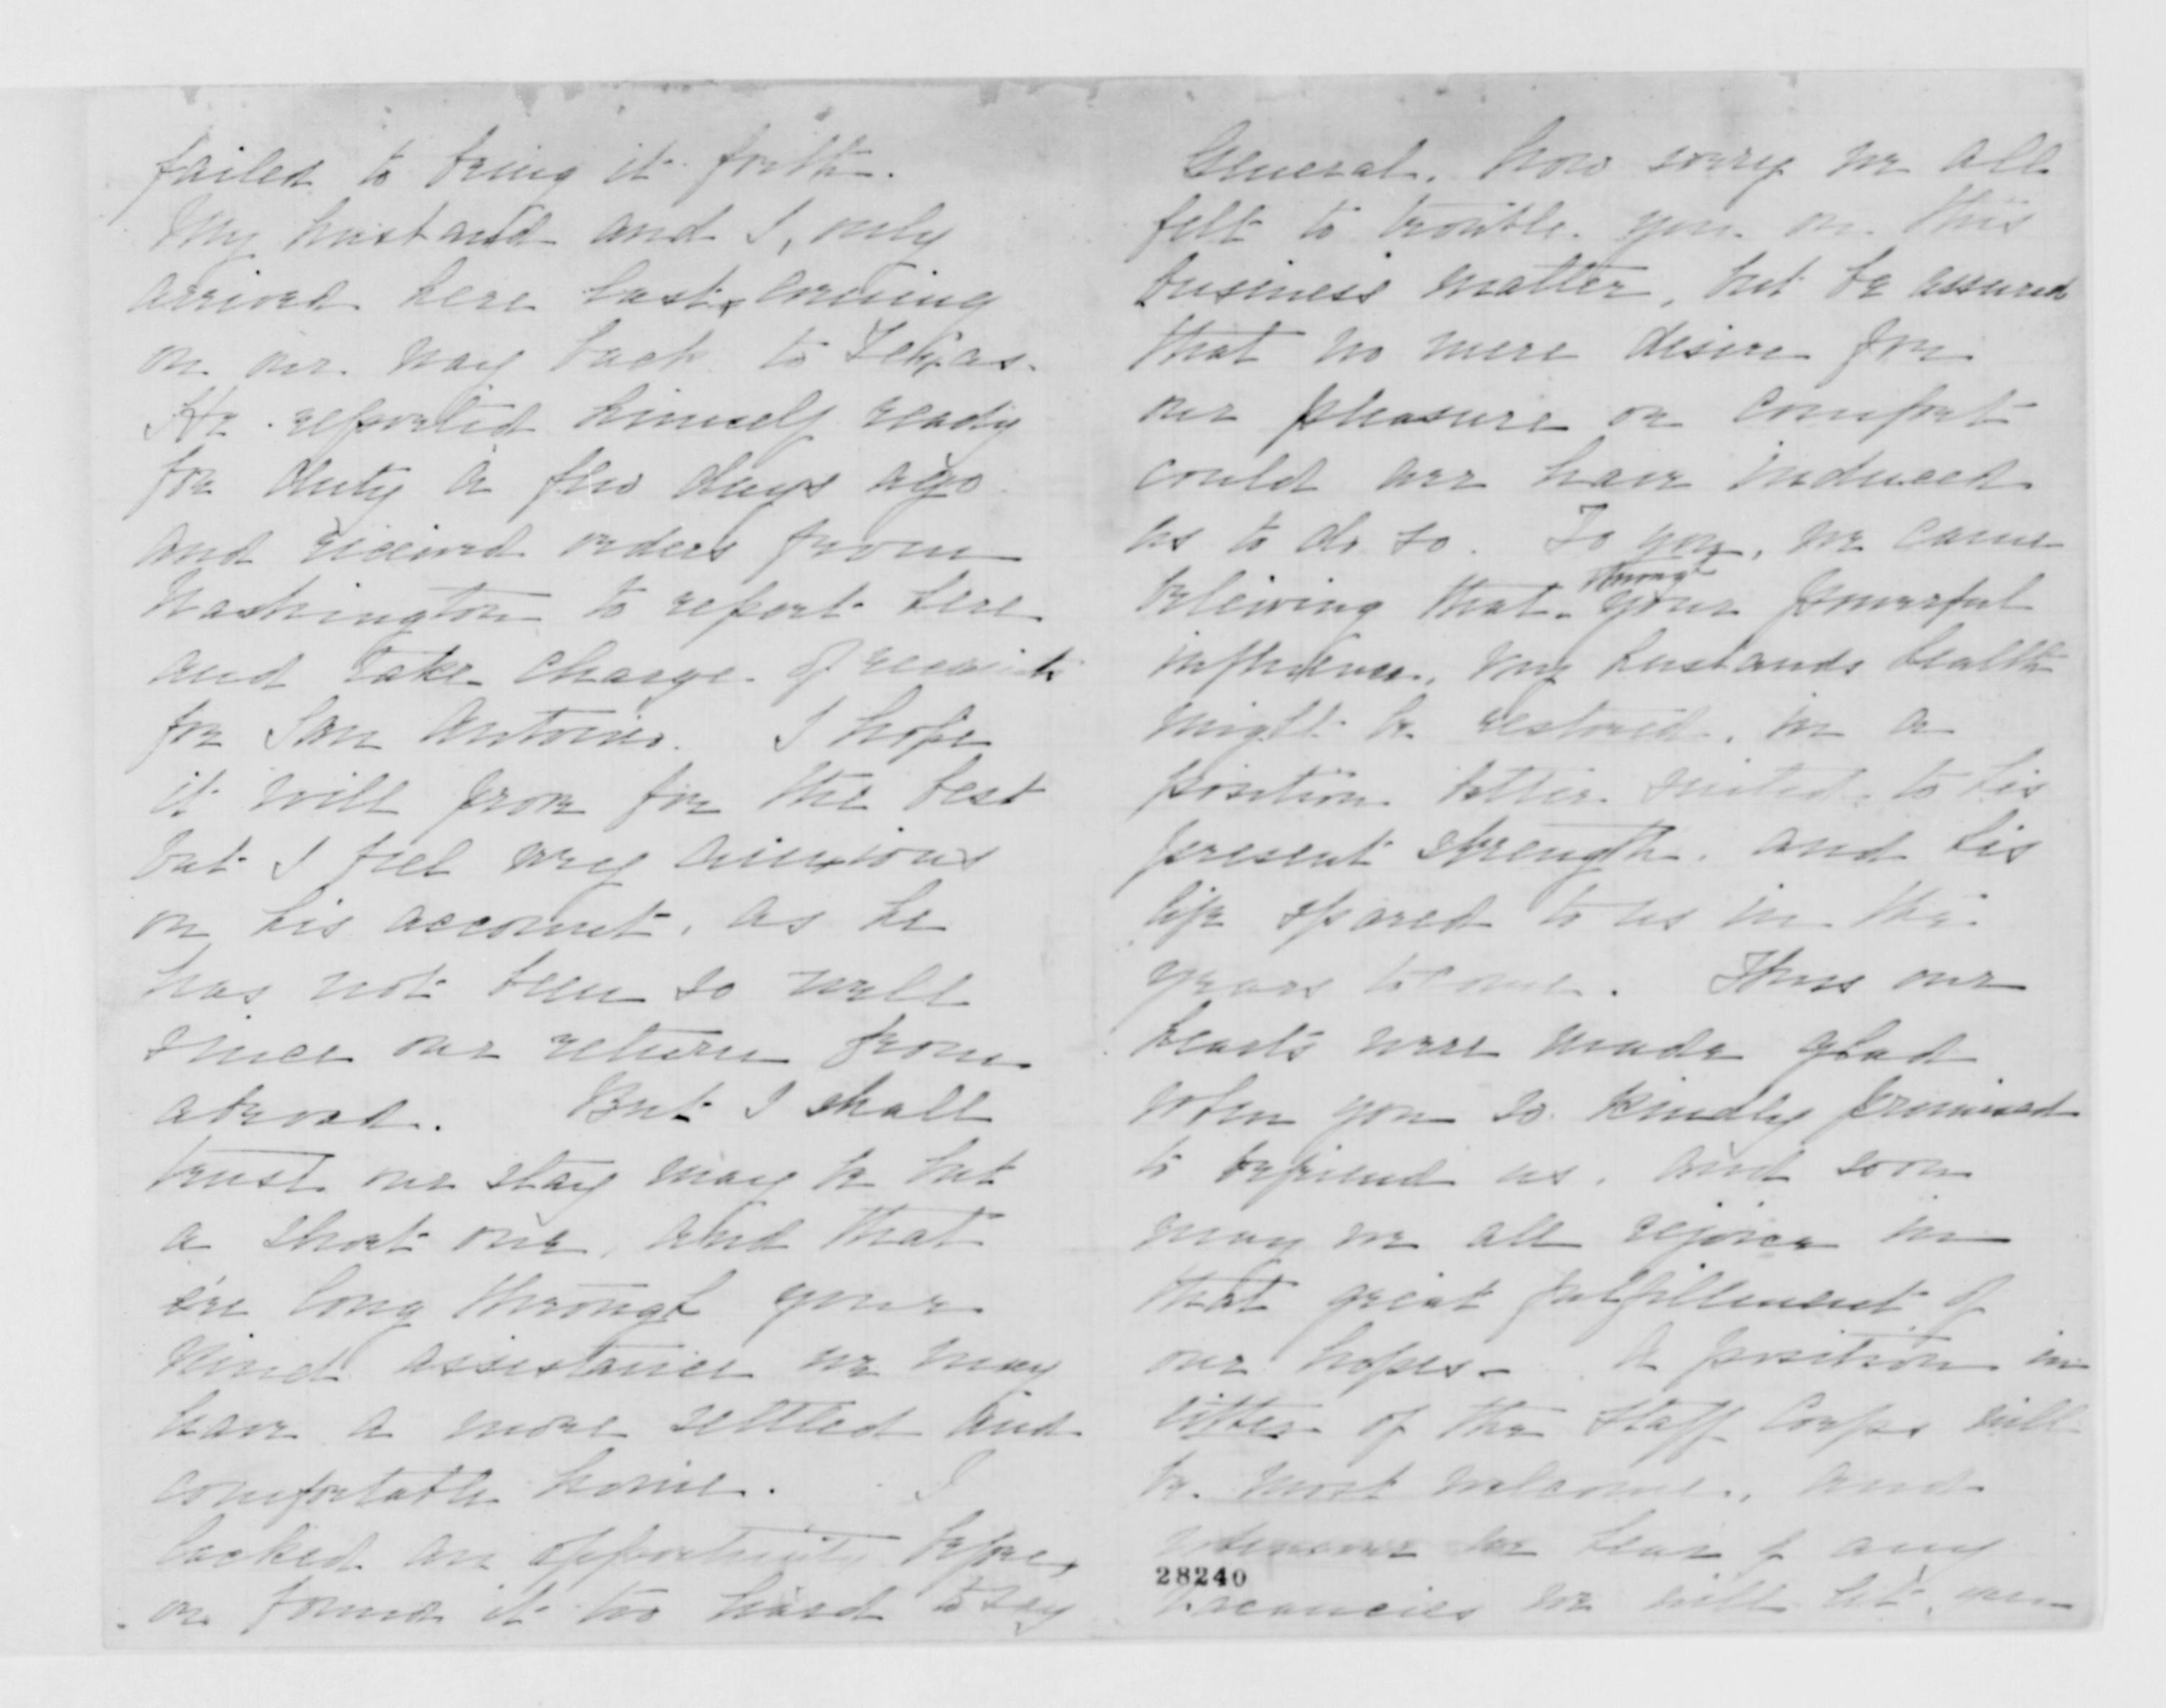 failed to bring it forth.
My husband and I, only
arrived here last evening
on our way back to Texas.
He reported himself ready
for duty a few days ago
and received orders from
Washington to report here
and take charge of recruits
for San Antonio. I hope
it will prove for the best
but I feel very anxious
on his account, as he
has not been so well
since our return from
abroad. But I shall
trust our stay may be but
a short one, and that
e're long through your
kind assistance we may
have a more settled and
comfortable home. I
lacked an opportunity before,
or found it too hard to say
General, how sorry we all
felt to trouble you on this
business matter, but be assured
that no mere desire for
our pleasure or comfort
could have induced
us to do so. To you, we came
beleiving that through your powerful
influence, my husbands health
might be restored, in a
position better suited to his
present strength, and his
life spared to us in the
years to come. Thus our
hearts were made glad
when you so kindly promised
to befriend us, and soon
may we all rejoice in
that great fulfillment of
our hopes - A position in
either of the Staff Corps will
be most welcome, and
whenever we hear of any
28240
vacancies we will let you